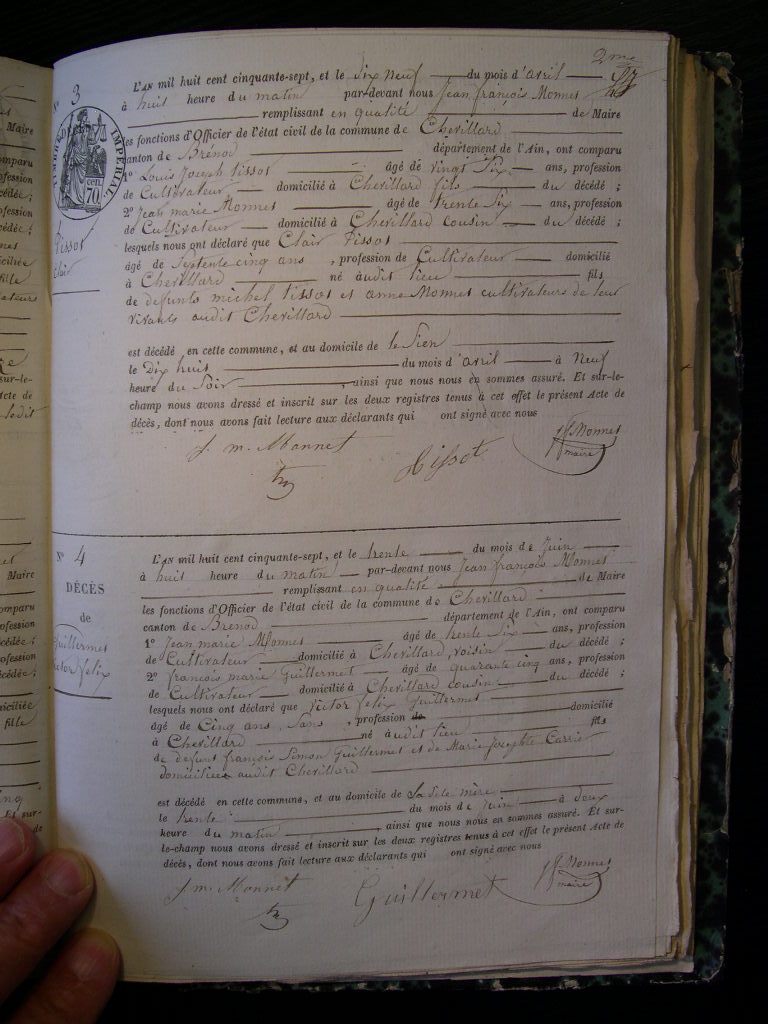 2me
N° 3
L'AN mil huit cent cinquante-sept, et le dix neuf du mois d'avril
à huit heure du matin par-devant nous Jean françois Monnet
remplissant en qualité de Maire
les fonctions d'Officier de l'état civil de la commune de Chevillard
canton de Brénod département de l'Ain, ont comparu
1° Louis Joseph tissot âgé de vingt Six ans, profession
de Cultivateur domicilié à Chevillard fils du décédé ;
2° Jean marie Monnet âgé de trente Six ans, profession
de Cultivateur domicilié à Chevillard cousin du décédé ;
lesquels nous ont déclaré que Clair Tissot
âgé de Septente cinq ans, profession de Cultivateur domicilié
à Chevillard né audit lieu fils
de defunts michel tissot et anne Monnet cultivateurs de leur
vivants audit Chevillard
est décédé en cette commune, et au domicile de le Sien
le Dix huit du mois d'avril à Neuf
heure du Soir, ainsi que nous nous en sommes assuré. Et sur-le-
champ nous avons dressé et inscrit sur les deux registres tenus à cet effet le présent Acte de
décès, dont nous avons fait lecture aux déclarants qui ont signé avec nous
TIMBRE IMPERIAL
70 cen.
Tissot
Clair
J. m. Monnet
tissot
Jf Monnet
maire
N° 4
DÉCÈS
de
Guillermet
Victor felix
L'AN mil huit cent cinquante-sept, et le trente du mois de Juin
à huit heure du matin par-devant nous Jean françois Monnet
remplissant en qualité de Maire
les fonctions d'Officier de l'état civil de la commune de Chevillard
canton de Brenod département de l'Ain, ont comparu
1° Jean marie Monnet âgé de trente Six ans, profession
de Cultivateur domicilié à Chevillard, voisin du décédé ;
2° françois marie Guillermet âgé de quarante cinq ans, profession
de Cultivateur domicilié à Chevillard cousin du décédé ;
lesquels nous ont déclaré que Victor felix Guillermet
âgé de Cinq ans, Sans, profession de domicilié
à Chevillard né audit lieu fils
de defunt françois Simon Guillermet et de Marie Josephte Carrie
domiciliée audit Chevillard
est décédé en cette commune, et au domicile de Sa dite mère
le trente du mois de Juin à deux
heure du matin, ainsi que nous nous en sommes assuré. Et sur-
le-champ nous avons dressé et inscrit sur les deux registres tenus à cet effet le présent Acte de
décès, dont nous avons fait lecture aux déclarants qui ont signé avec nous
J m. Monnet
Guillermet
Jf Monnet
maire